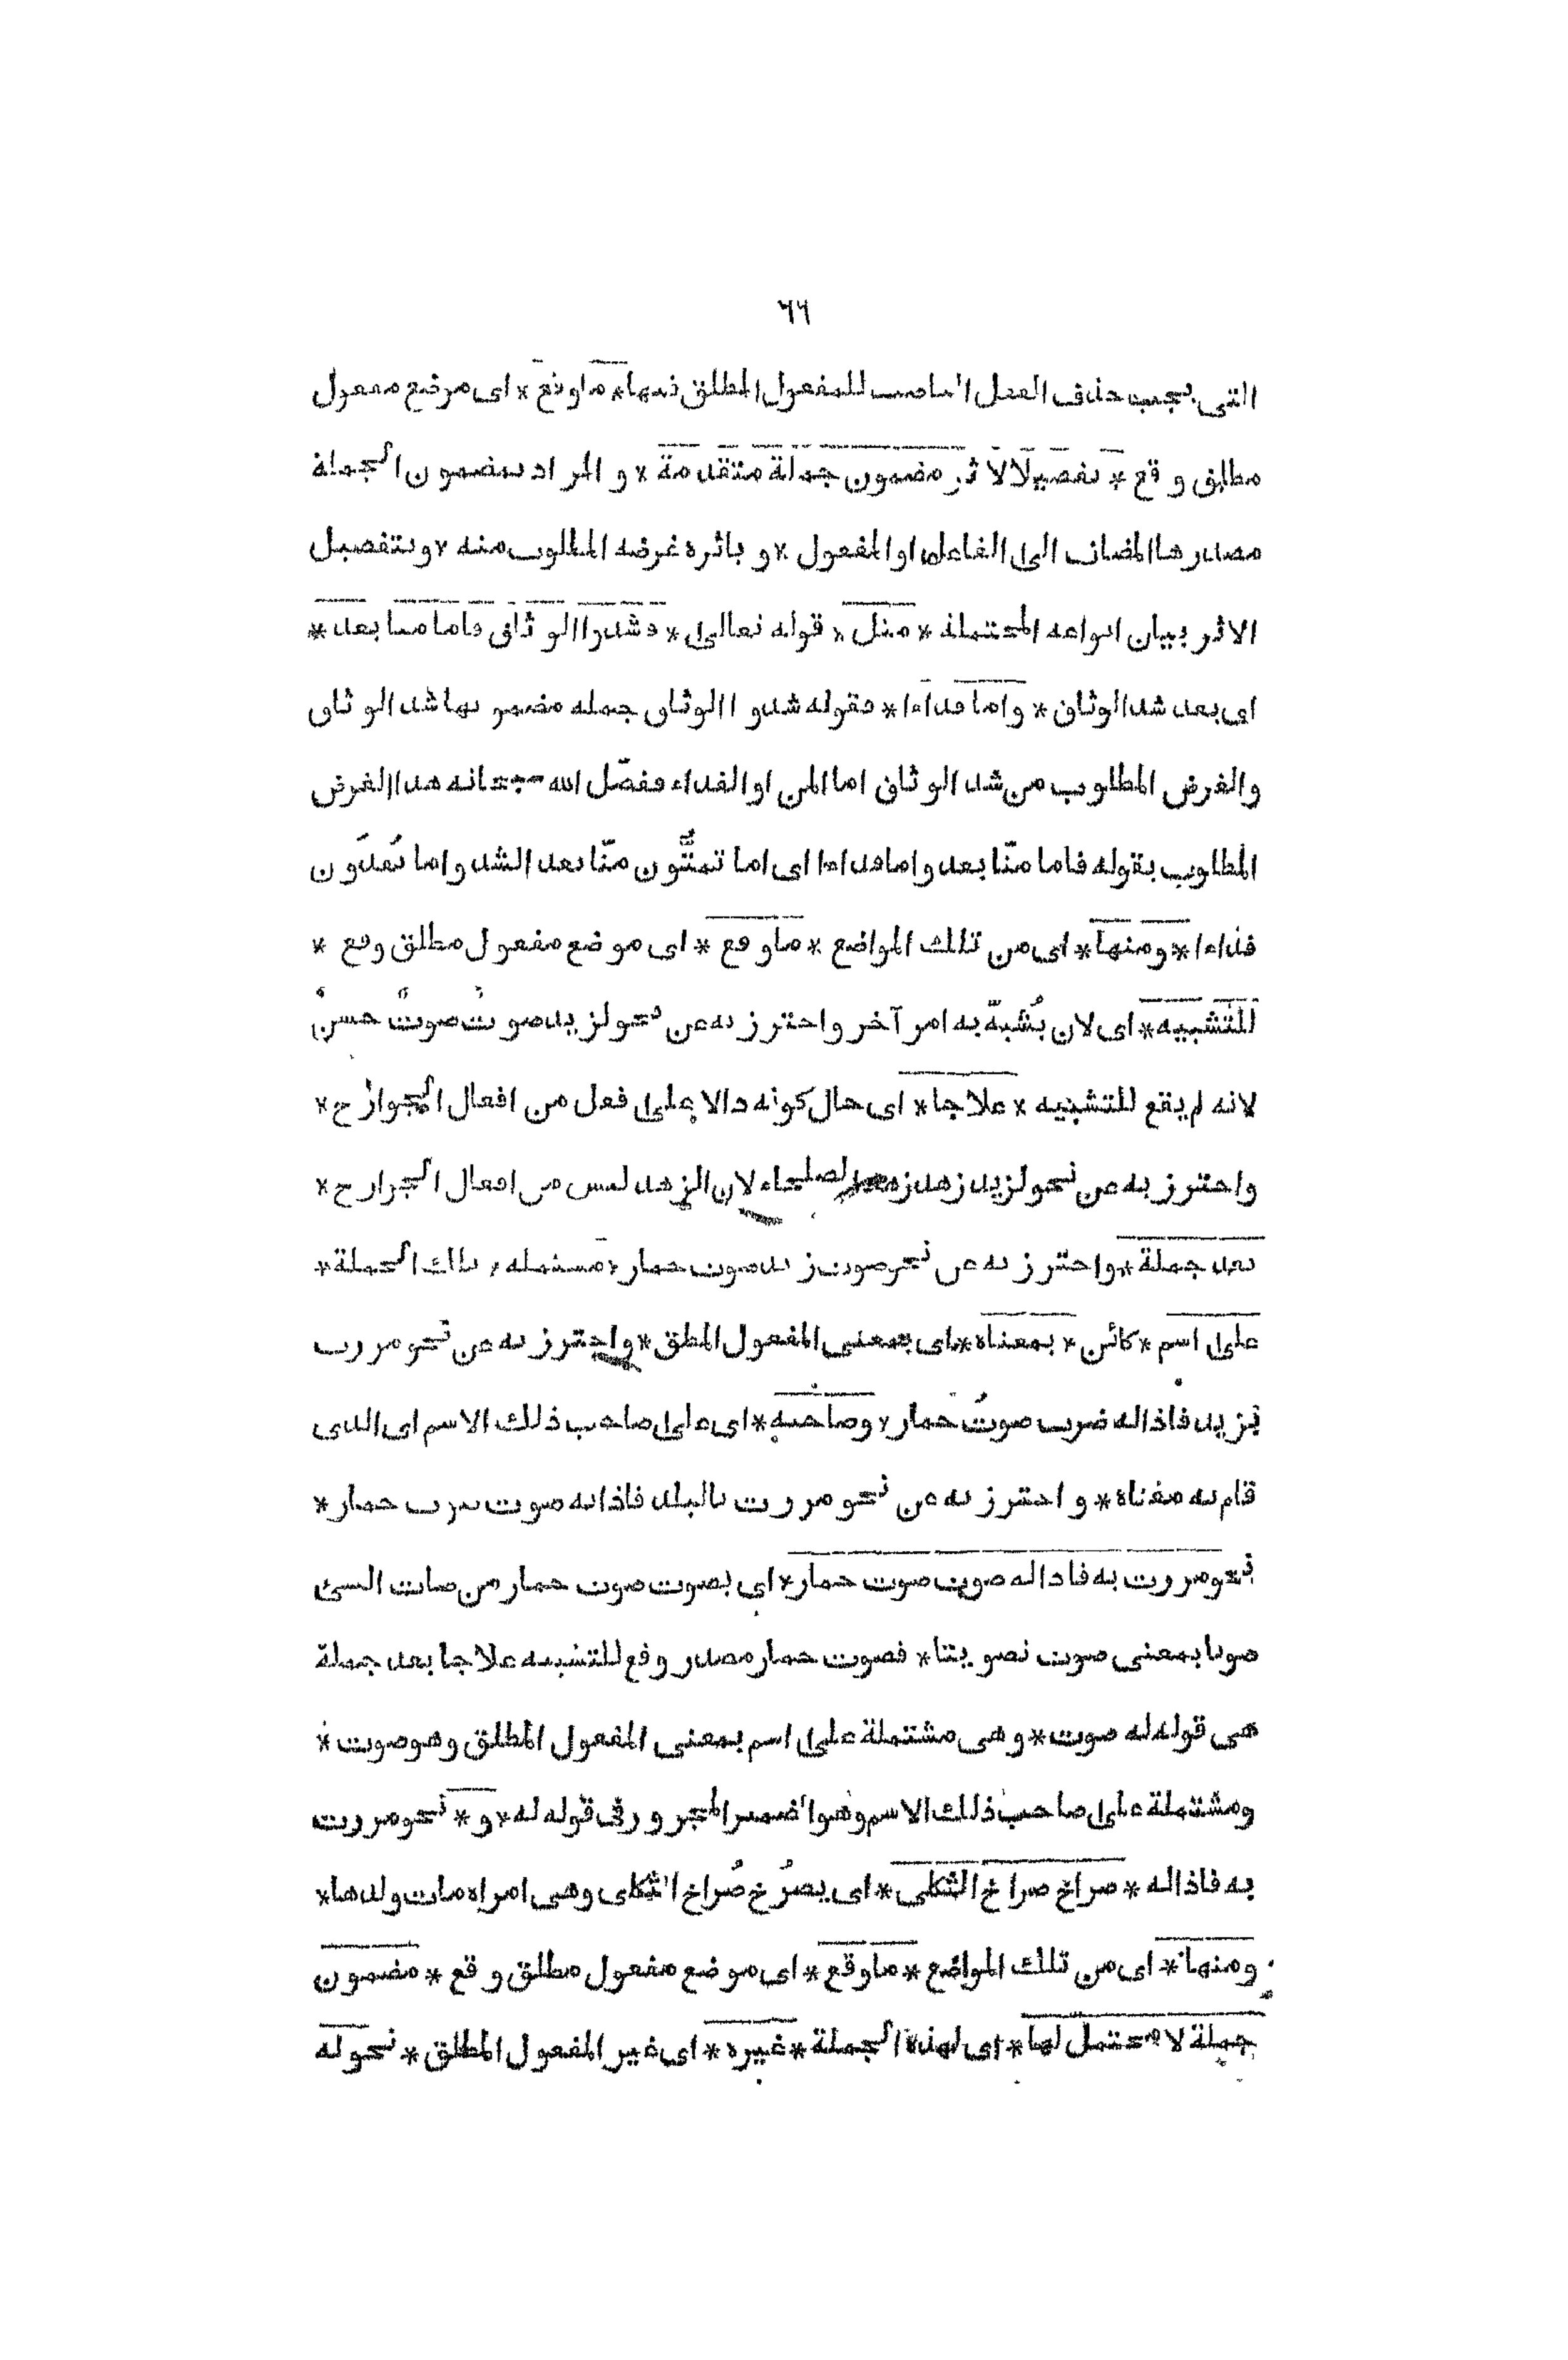 ٦٦
التى يجب حذف الفعل الناصب للمفعول المطلق فيها * ما وقع * اى موضع مفعول
مطلق وقع * تفصيلا لاثر مضمون جملة متقدمة * و المراد بمضمون الجملة
مصدرها المضاف الى الفاعل او المفعول * و باثره غرضه المطلوب منه * و بتفصيل
الاثر بيان انواعه المحتملة * مثل * قوله تعالى * فشدوا الوثاق فاما منا بعد *
اى بعد شد الوثاق * واما فداءا * فقوله شدوا الوثاق جمله مضمونها شد الوثاق
والغرض المطلوب من شد الوثاق اما المن او الفداء ففصّل الله سبحانه هذا الغرض
المطلوب بقوله فاما منّا بعد واما فداءا اى اما تمنّون منّا بعد الشد واما تُفدَون
فداءا * ومنها * اى من تلك المواضع * ما وقع * اى موضع مفعول مطلق وقع *
للتشبيه * اى لان يُشبّه به امر آخر واحترز به عن نحو لزيد صوتٌ صوتٌ حسنٌ
لانه لم يقع للتشبيه * علاجا * اى حال كونه دالا على فعل من افعال الجوارح *
واحترز به عن نحو لزيد زهد زهد الصلحاء لان الزهد ليس من افعال الجوارح *
بعد جملة * واحترز به عن نحو صوت زيد صوت حمار * مشتمله * تلك الجملة *
على اسم * كائن * بمعناه * اى بمعنى المفعول المطق * واحترز به عن نحو مررت
بزيد فاذا له ضرب صوتُ حمار * وصاحبه * اى على صاحب ذلك الاسم اى الذى
قام به معناه * و احترز به عن نحو مررت بالبلد فاذا به صوت صوت حمار *
نحو مررت به فاذا له صوت صوت حمار * اى بصوت صوت حمار من صات الشئ
صوتا بمعنى صوت تصويتا * فصوت حمار مصدر وقع للتشبيه علاجا بعد جملة
هى قوله له صوت * و هى مشتملة على اسم بمعنى المفعول المطلق وهو صوت *
ومشتملة على صاحب ذلك الاسم وهو الضمير المجرور فى قوله له * و * نحو مررت
به فاذا له * صراخ صراخ الثكلى * اى يصرُخ صُراخ الثكلى وهى امراه مات ولدها *
ومنها * اى من تلك المواضع * ما وقع * اى موضع مفعول مطلق وقع * مضمون
جملة لا محتمل لها * اى لهذه الجملة * غيره * اى غير المفعول المطلق * نحو له